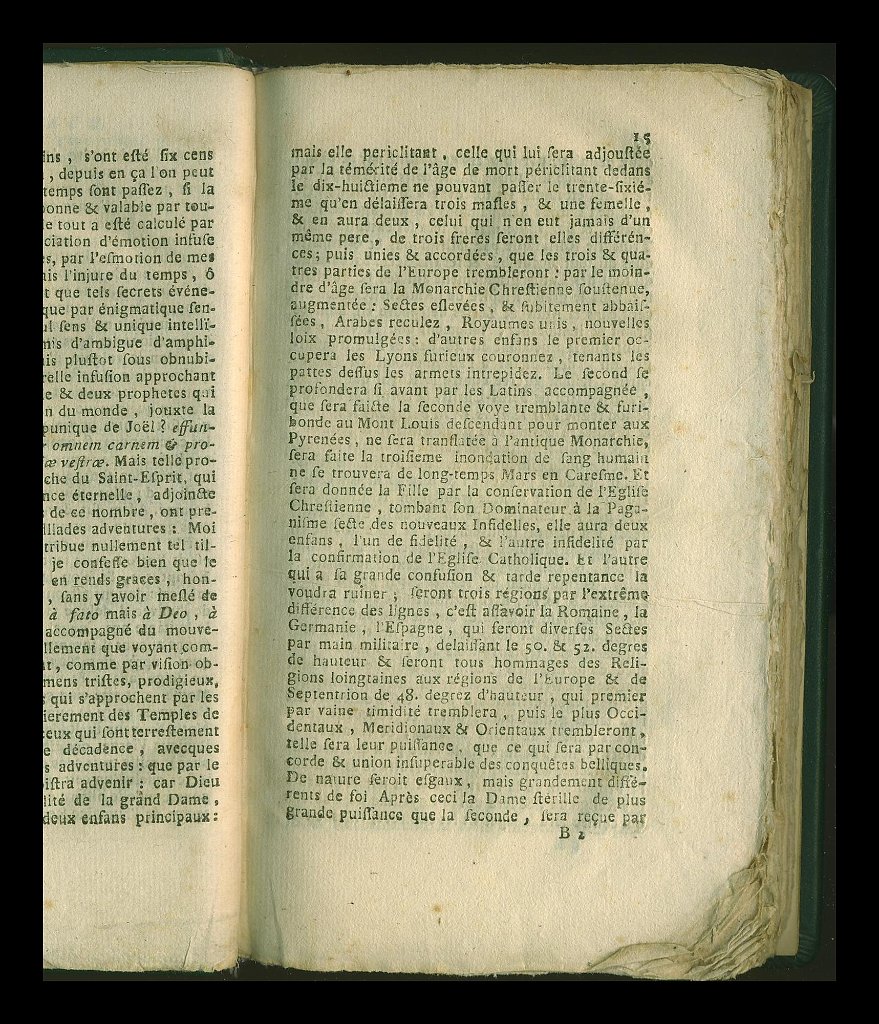 ins, s'ont eſté ſix cens
, depuis en ça l'on peut
temps ſont paſſez, ſi la
bonne & valable par tou-
e tout a eſté calculé par
ciation d'émotion infuſe
s, par l'eſmotion de mes
is l'injure du temps, ô
t que tels ſecrets événe-
que par énigmatique ſen-
ul ſens & unique intelli-
mis d'ambigue d'amphi-
is pluſtot ſous obnubi-
relle infuſion approchant
e & deux prophetes qui
n du monde, jouxte la
punique de Joël ? effun-
omnem carnem & pro-
æ veſtræ. Mais telle pro-
che du Saint-Eſprit, qui
nce éternelle, adjoincte
de ce nombre, ont pre-
illades adventures : Moi
tribue nullement tel til-
je confeſſe bien que le
en rends graces, hon-
, ſans y avoir meſlé de
à fato mais à Deo, à
accompagné du mouve-
llement que voyant com-
t, comme par viſion ob-
mens triſtes, prodigieux,
qui s'approchent par les
ierement des Temples de
ceux qui ſont terreſtement
e décadence, avecques
s adventures : que par le
iſtra advenir : car Dieu
lité de la grand Dame,
deux enfans principaux :
15
mais elle periclitant, celle qui lui ſera adjouſtée
par la témérité de l'âge de mort périclitant dedans
le dix-huictieme ne pouvant paſſer le trente-ſixié-
me qu'en délaiſſera trois maſles, & une femelle,
& en aura deux, celui qui n'en eut jamais d'un
même pere, de trois freres ſeront elles différén-
ces ; puis unies & accordées, que les trois & qua-
tres parties de l'Europe trembleront : par le moin-
dre d'âge ſera la Monarchie Chreſtienne ſouſtenue,
augmentée : Sectes eſlevées, & ſubitement abbaiſ-
ſées, Arabes reculez, Royaumes unis, nouvelles
loix promulgées : d'autres enfans le premier oc-
cupera les Lyons furieux couronnez, tenants les
pattes deſſus les armets intrepidez. Le ſecond ſe
profondera ſi avant par les Latins accompagnée,
que ſera faicte la ſeconde voye tremblante & furi-
bonde au Mont Louis deſcendant pour monter aux
Pyrenées, ne ſera tranſlatée à l'antique Monarchie,
ſera faite la troiſieme inondation de ſang humain
ne ſe trouvera de long-temps Mars en Careſme. Et
ſera donnée la Fille par la conſervation de l'Egliſe
Chreſtienne, tombant ſon Dominateur à la Paga-
niſme ſecte des nouveaux Infidelles, elle aura deux
enfans, l'un de fidelité, & l'autre infidelité par
la confirmation de l'Egliſe Catholique. Et l'autre
qui a ſa grande confuſion & tarde repentance la
voudra ruiner ; ſeront trois régions par l'extrême
différence des lignes, c'eſt aſſavoir la Romaine, la
Germanie, l'Eſpagne, qui ſeront diverſes Sectes
par main militaire, delaiſſant le 50. & 52. degres
de hauteur & ſeront tous hommages des Reli-
gions loingtaines aux régions de l'Europe & de
Septentrion de 48. degrez d'hauteur, qui premier
par vaine timidité tremblera, puis le plus Occi-
dentaux, Meridionaux & Orientaux trembleront,
telle ſera leur puiſſance, que ce qui ſera par con-
corde & union inſuperable des conquêtes belliques.
De nature ſeroit eſgaux, mais grandement diffé-
rents de foi Après ceci la Dame ſtérille de plus
grande puiſſance que la ſeconde, ſera reçue par
B 2